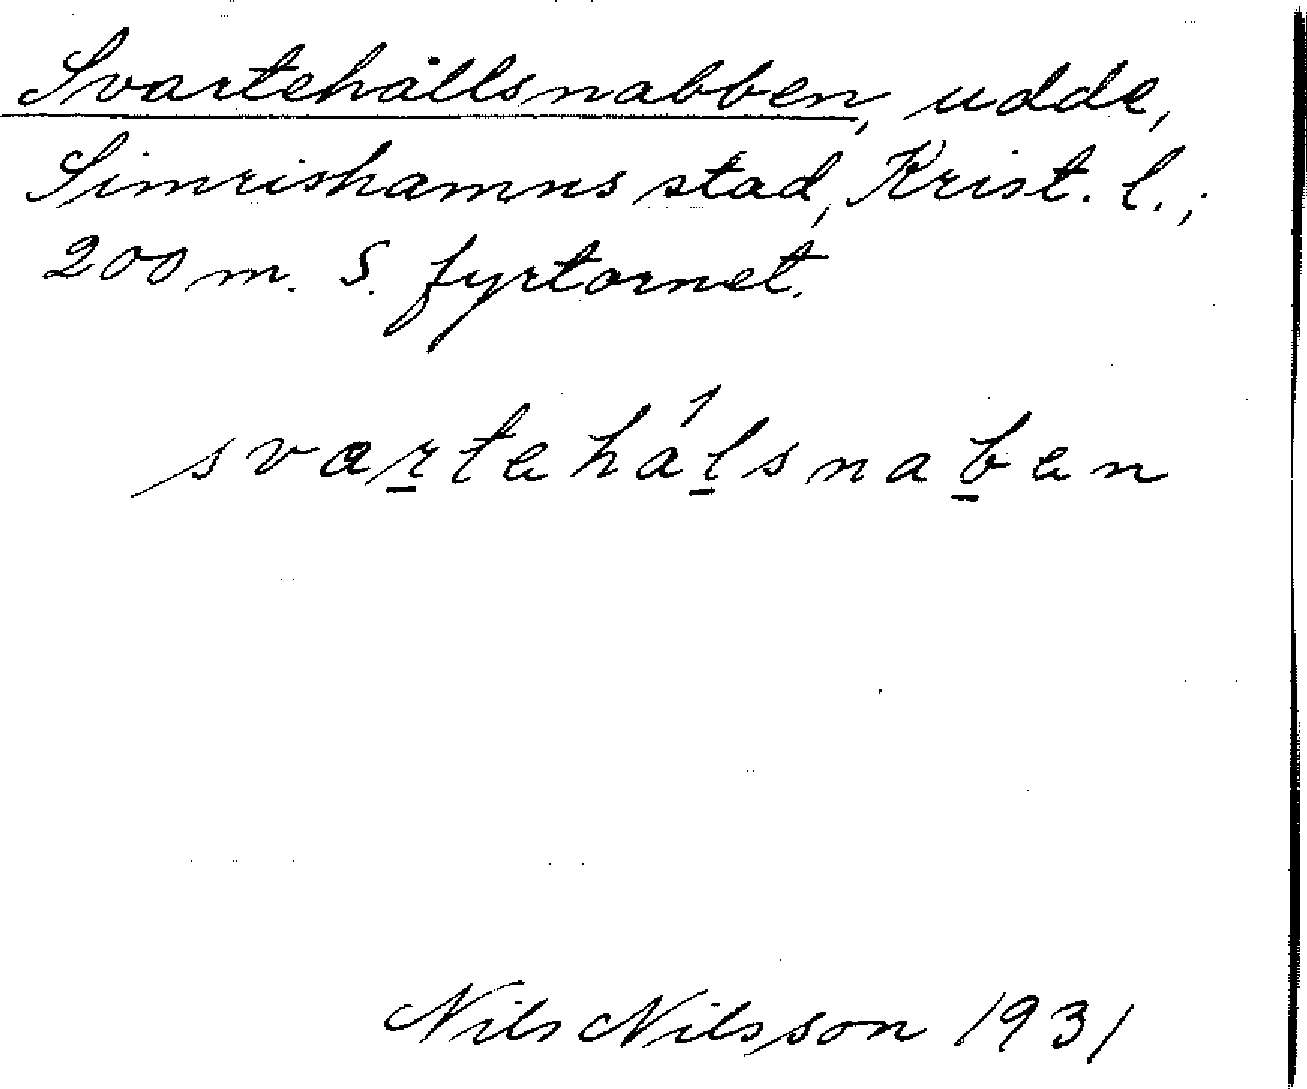 Svartehallsnabben, udde,
Simrishamns stad, Krist. l.,;
200 m. S. fyrtornet.
svartehalsnaben
Nils Nilsson 1931